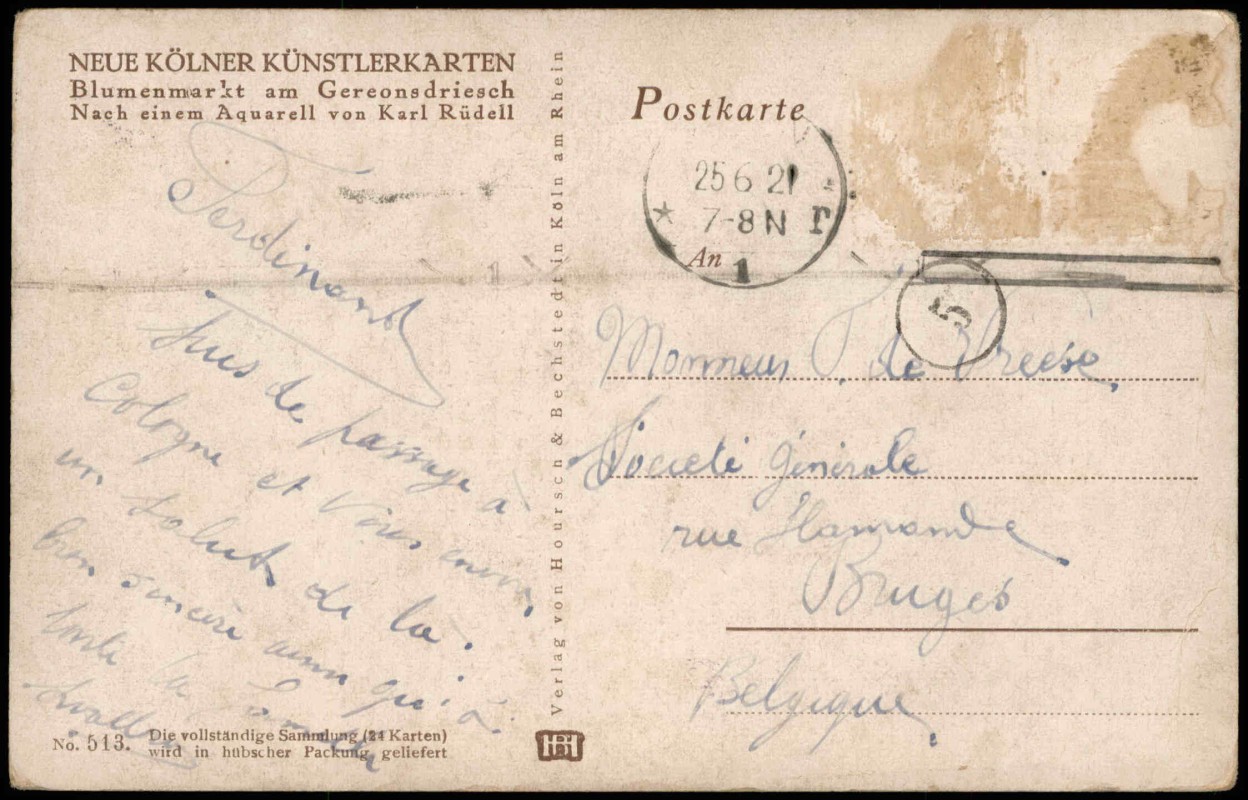 NEUE KÖLNER KÜNSTLERKARTEN
Blumenmarkt am Gereonsdriesch
Nach einem Aquarell von Karl Rüdell
Ferdinand
Suis de passage à
Cologne et vous envoie
un salut de là.
bien sincère ainsi qu'à
toute la
No. 513.
Die vollständige Sammlung (24 Karten)
wird in hübscher Packung geliefert
Verlag von Hoursch & Bechstedt in Köln am Rhein
HB
Postkarte
25 6 21
7-8 N
1
An
5
Monsieur J. de Vreese,
Société Générale
rue Flamande
Bruges
Belgique